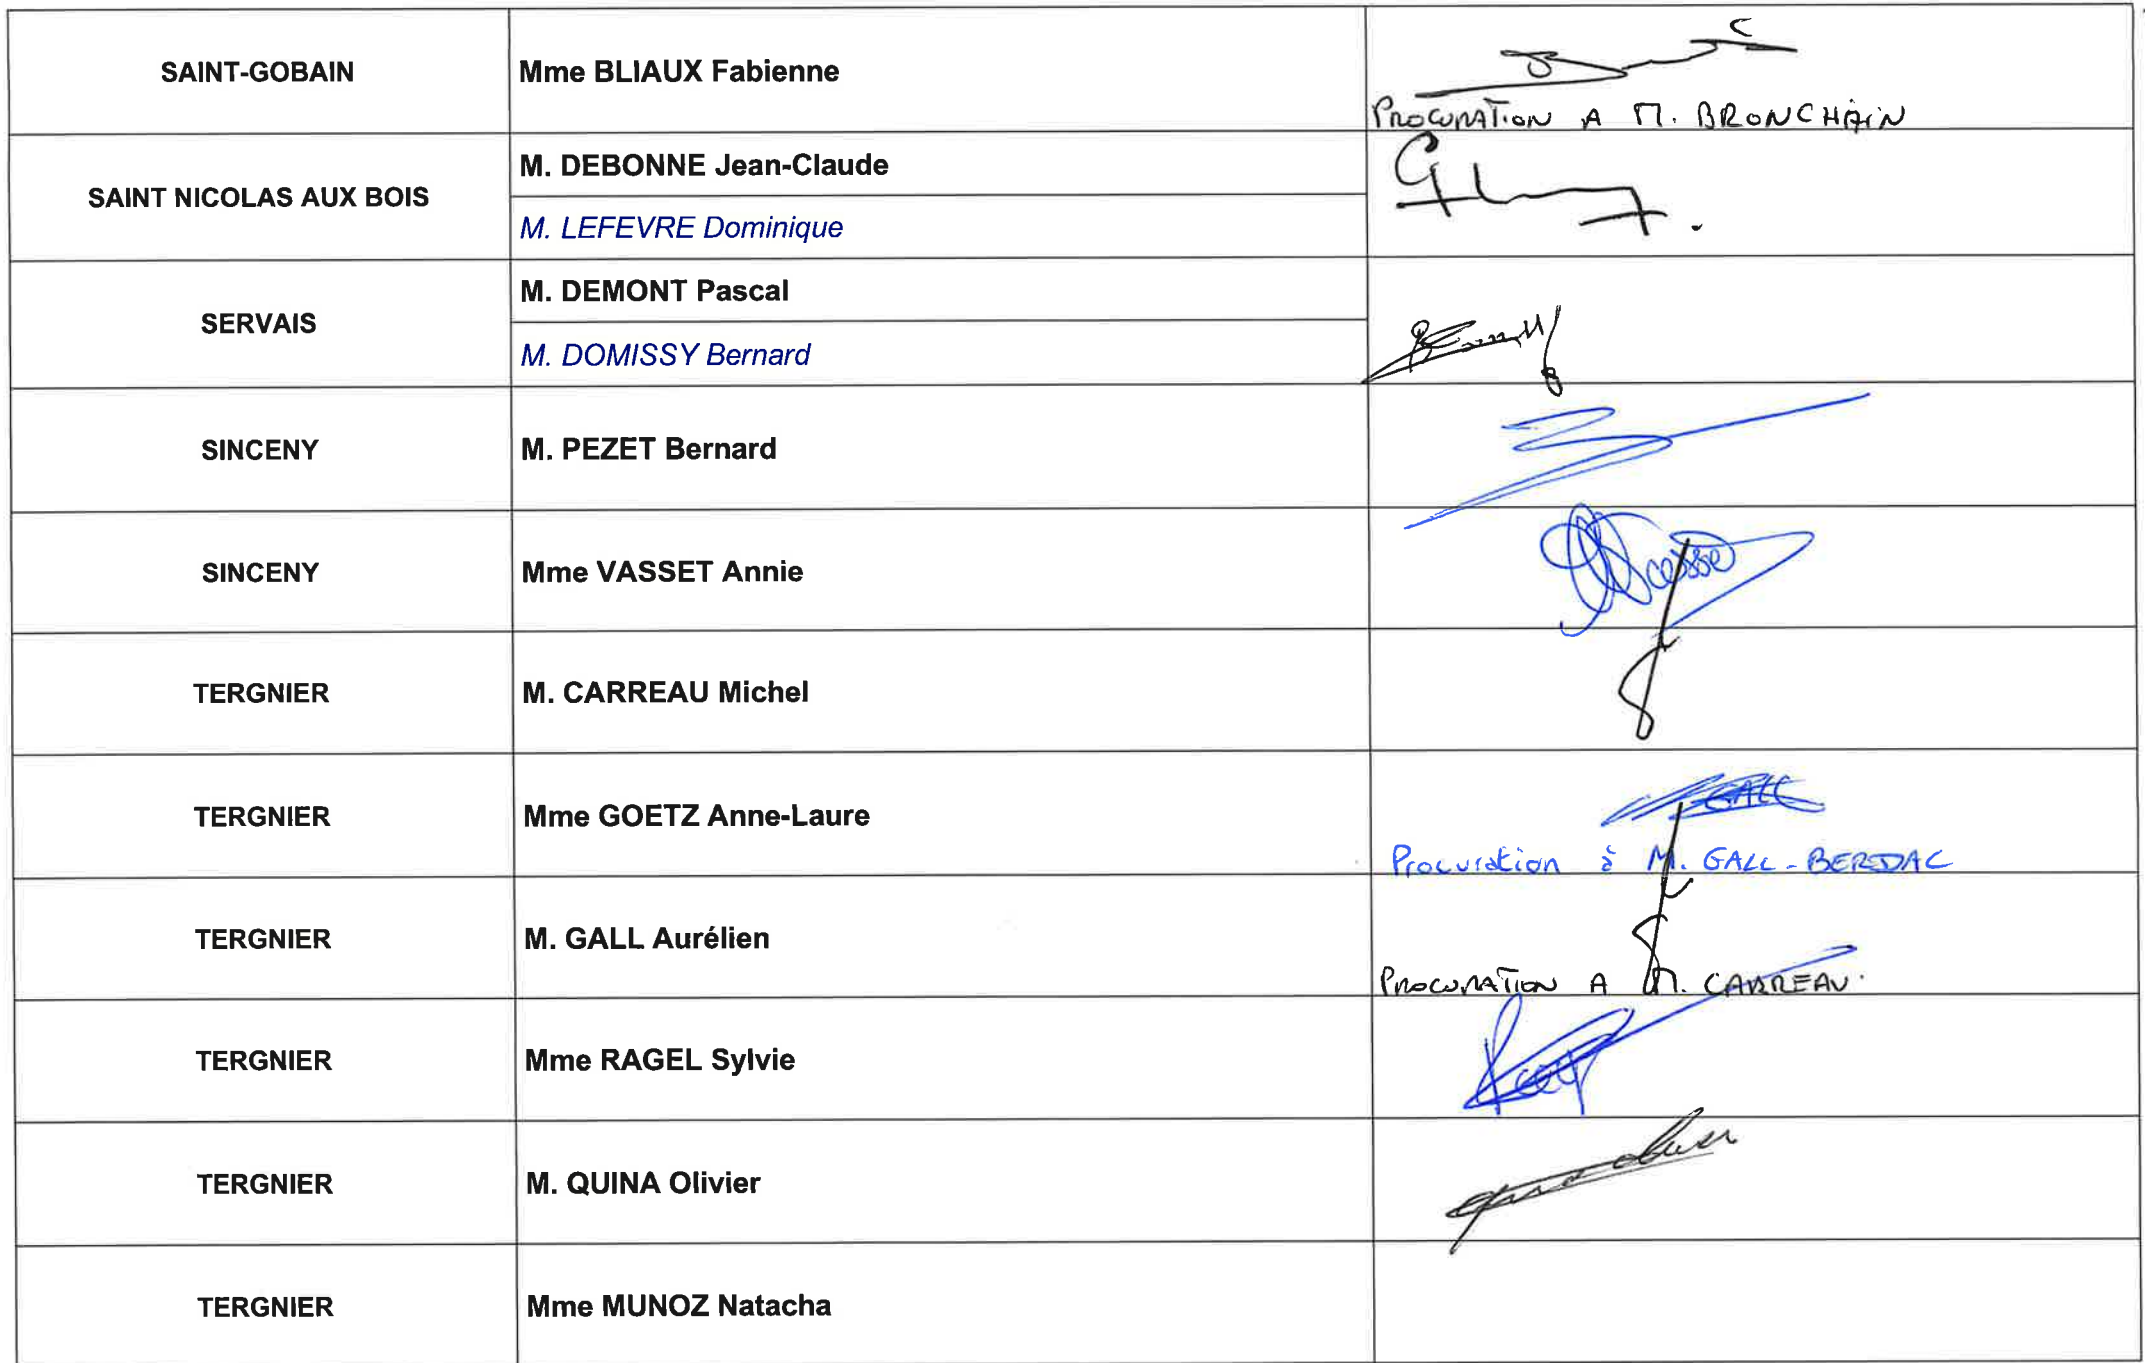 SAINT-GOBAIN
Mme BLIAUX Fabienne
PROCURATION A M. BRONCHAIN
SAINT NICOLAS AUX BOIS
M. DEBONNE Jean-Claude
M. LEFEVRE Dominique
SERVAIS
M. DEMONT Pascal
M. DOMISSY Bernard
SINCENY
M. PEZET Bernard
SINCENY
Mme VASSET Annie
TERGNIER
M. CARREAU Michel
TERGNIER
Mme GOETZ Anne-Laure
GALL
Procuration à M. GALL-BERDAC
TERGNIER
M. GALL Aurélien
PROCURATION A M. CARREAU.
TERGNIER
Mme RAGEL Sylvie
TERGNIER
M. QUINA Olivier
TERGNIER
Mme MUNOZ Natacha